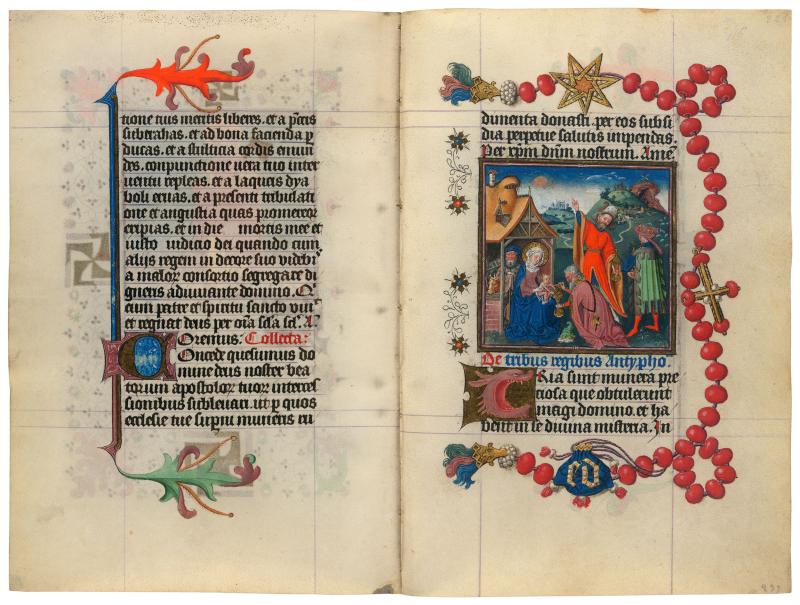 tione tuis meritis liberes. et a pctis
subtrahas. et ad bona facienda p
ducas. et a stulticia cordis emun
des. conpunctione vera tuo inter
ventu repleas. et a laqueis dya
boli eruas. et a presenti tribulati
one et angustia quas promereor
eripias. et in die mortis mee et
iusto iudicio dei quando cum
alijs regem in decore suo videbi
a malor consortio segregare di
gneris adiuvante domino. Q
cum patre et spiritu sancto vivit
et regnat deus per oia scla scl. A
Oremus. Collecta:
Concede quesumus do
mine deus noster bea
torum apostolor tuor interces
sionibus sublevari. ut p quos
ecclesie tue supni muneris ru
dimenta donasti. per eos subsi
dia perpetue salutis impendas.
Per xpm dnm nostrum. Ame
De tribus regibus Antypho.
Ria sunt munera pre
ciosa que obtulerunt
magi domino. et ha
bent in se divina misteria. In